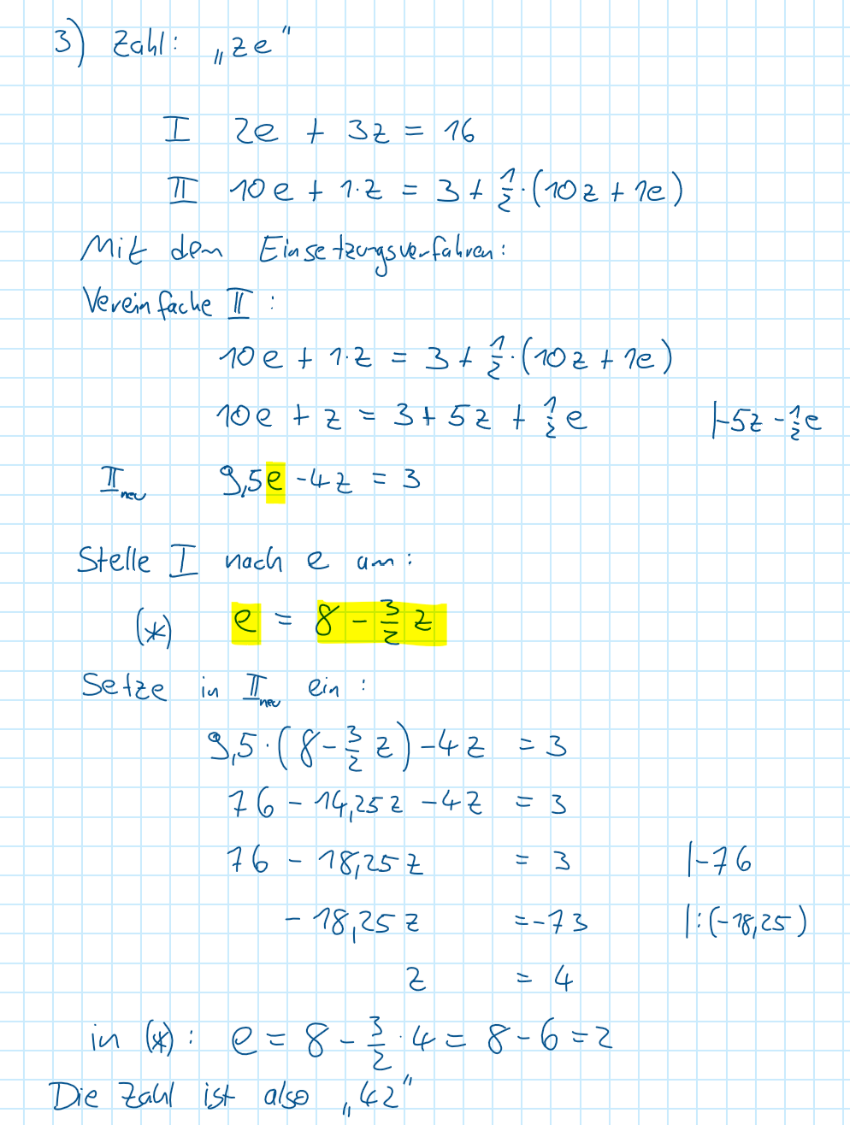 3) Zahl: „ze“
I 2e + 3z = 16
II 10e + 1·z = 3 + 1/2·(10z + 1e)
Mit dem Einsetzungsverfahren:
Vereinfache II:
10e + 1·z = 3 + 1/2·(10z + 1e)
10e + z = 3 + 5z + 1/2 e |-5z - 1/2 e
II neu 9,5e - 4z = 3
Stelle I nach e um:
(*) e = 8 - 3/2 z
Setze in II neu ein:
9,5·(8 - 3/2 z) - 4z = 3
76 - 14,25z - 4z = 3
76 - 18,25z = 3 |-76
- 18,25z = -73 |:(-18,25)
z = 4
in (*): e = 8 - 3/2 · 4 = 8 - 6 = 2
Die Zahl ist also „42“